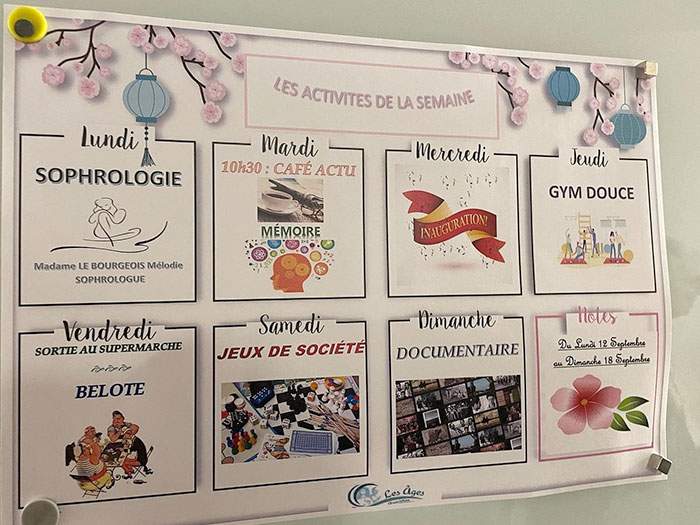 LES ACTIVITES DE LA SEMAINE
Lundi
SOPHROLOGIE
Madame LE BOURGEOIS Mélodie
SOPHROLOGUE
Mardi
10h30 : CAFÉ ACTU
MÉMOIRE
Mercredi
INAUGURATION!
Jeudi
GYM DOUCE
Vendredi
SORTIE AU SUPERMARCHE
BELOTE
Samedi
JEUX DE SOCIÉTÉ
Dimanche
DOCUMENTAIRE
Notes
Du Lundi 12 Septembre
au Dimanche 18 Septembre
Les Âges